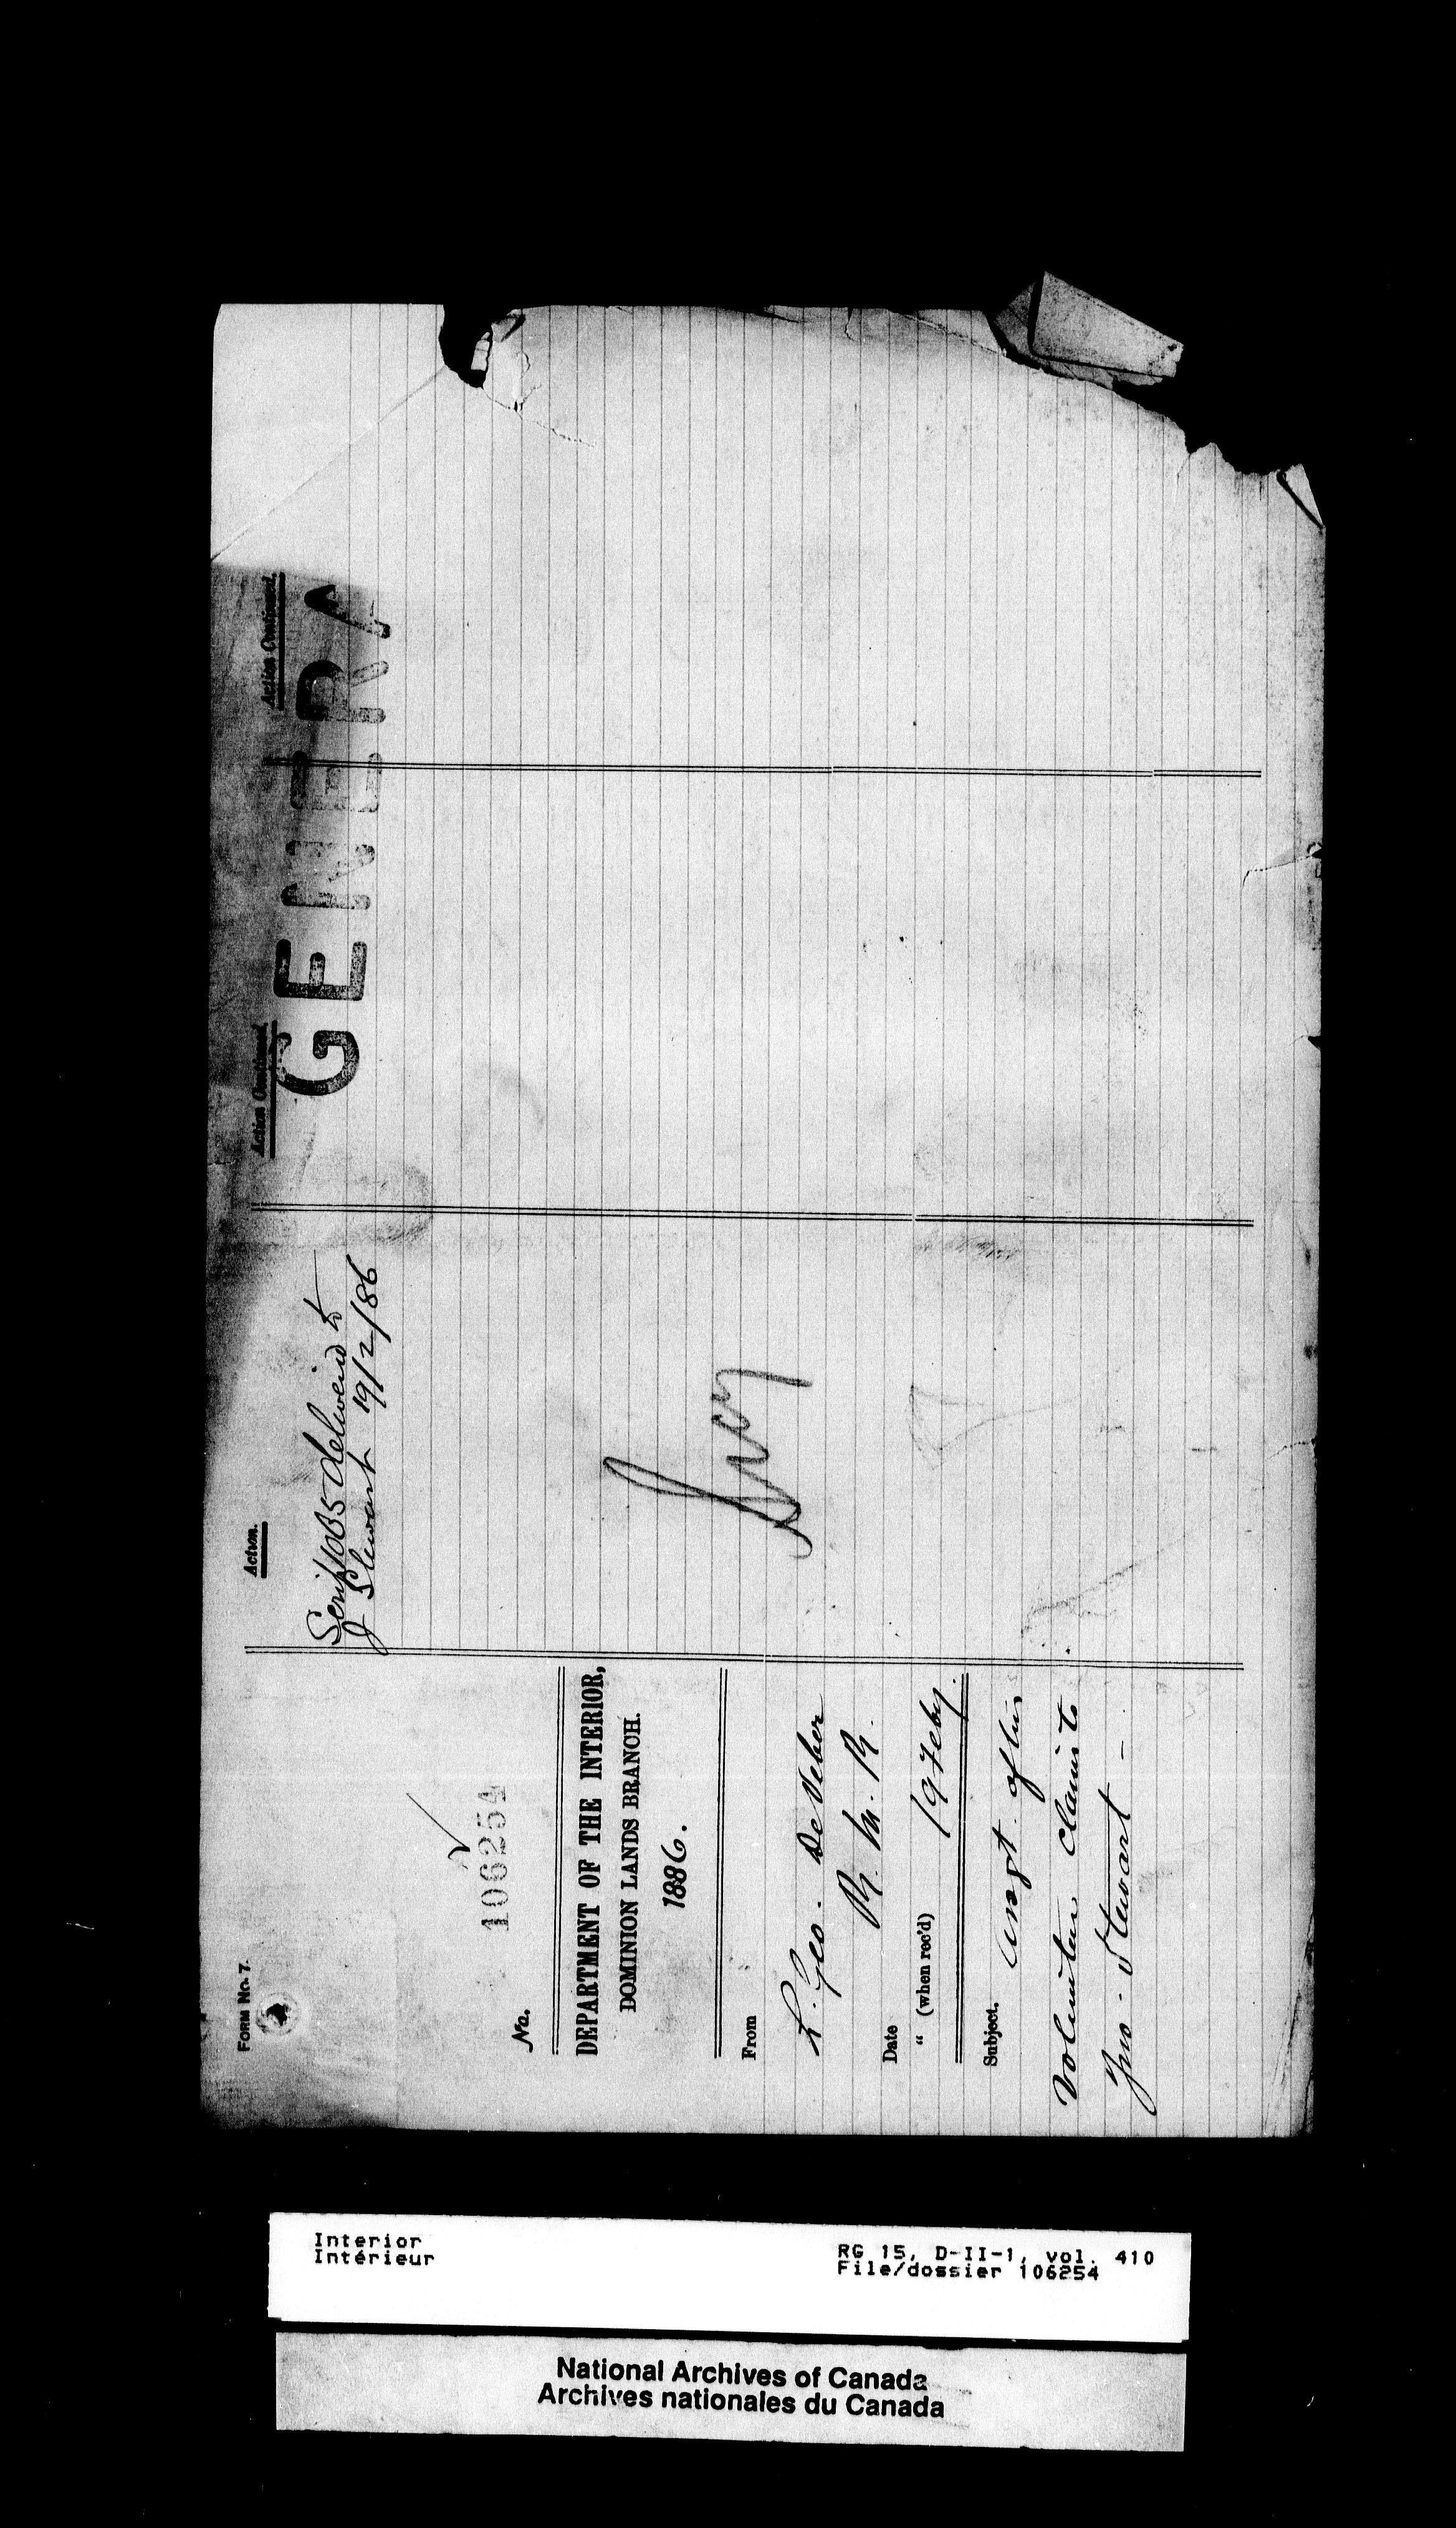 FORM No. 7.
106254
No.
DEPARTMENT OF THE INTERIOR,
DOMINION LANDS BRANCH.
1886.
From
L. Geo. De Veber
R. M. R.
Date
" (when rec'd) 19 Feby.
Subject.
Asgt. of his
Volunteer claim to
Jno. Stewart —
Action.
Scrip 1085 delivered to
J Stewart 19/2/86
Action Continued.
Action Continued.
GENERA
Interior
Intérieur
RG 15, D-II-1, vol. 410
File/dossier 106254
National Archives of Canada
Archives nationales du Canada